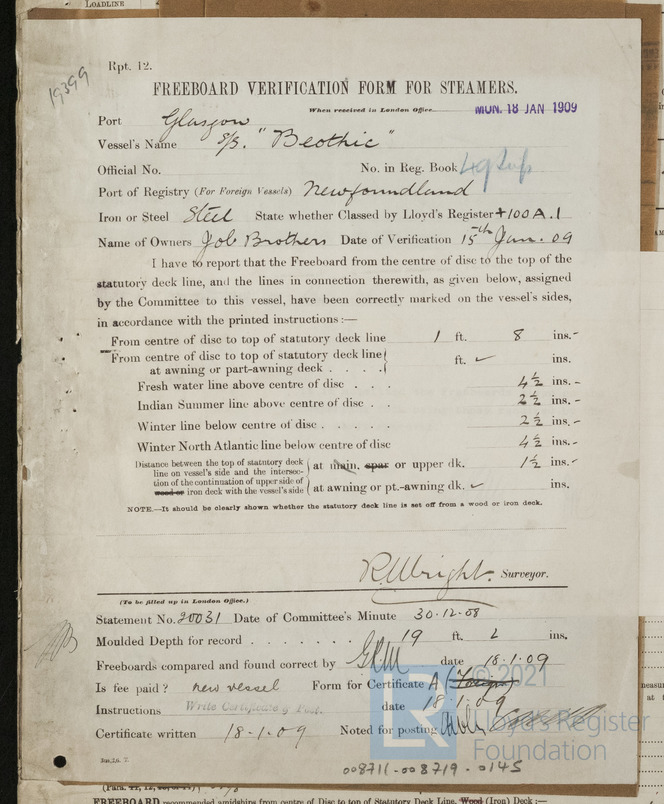 LOADLINE
19399
Rpt. 12.
FREEBOARD VERIFICATION FORM FOR STEAMERS.
When received in London Office MON. 18 JAN 1909
Port Glasgow
Vessel's Name S/S. "Beothic"
Official No. No. in Reg. Book 49 Sup
Port of Registry (For Foreign Vessels) Newfoundland
Iron or Steel Steel State whether Classed by Lloyd's Register +100A.1
Name of Owners Job Brothers Date of Verification 15th Jan. 09
I have to report that the Freeboard from the centre of disc to the top of the
statutory deck line, and the lines in connection therewith, as given below, assigned
by the Committee to this vessel, have been correctly marked on the vessel's sides,
in accordance with the printed instructions :—
From centre of disc to top of statutory deck line 1 ft. 8 ins.
From centre of disc to top of statutory deck line
at awning or part-awning deck . . . . ft. ✓ ins.
Fresh water line above centre of disc . . . 4½ ins.
Indian Summer line above centre of disc . . 2½ ins.
Winter line below centre of disc . . . . . 2½ ins.
Winter North Atlantic line below centre of disc 4½ ins.
Distance between the top of statutory deck
line on vessel's side and the intersec-
tion of the continuation of upper side of
wood or iron deck with the vessel's side
at main, spar or upper dk. 1½ ins.
at awning or pt.-awning dk. ✓ ins.
NOTE.—It should be clearly shown whether the statutory deck line is set off from a wood or iron deck.
R. Wright. Surveyor.
(To be filled up in London Office.)
Statement No. 20031 Date of Committee's Minute 30.12.08
Moulded Depth for record . . . . . . . 19 ft. 2 ins.
Freeboards compared and found correct by date 18.1.09
Is fee paid? new vessel Form for Certificate A (Foreign)
Instructions Write Certificate & Post. date 18.1.09
Certificate written 18-1-09 Noted for posting
© 2021
Lloyd's Register
Foundation
LR
008711-008719-0145
FREEBOARD recommended amidships from centre of Disc to top of Statutory Deck Line, Wood (Iron) Deck :—